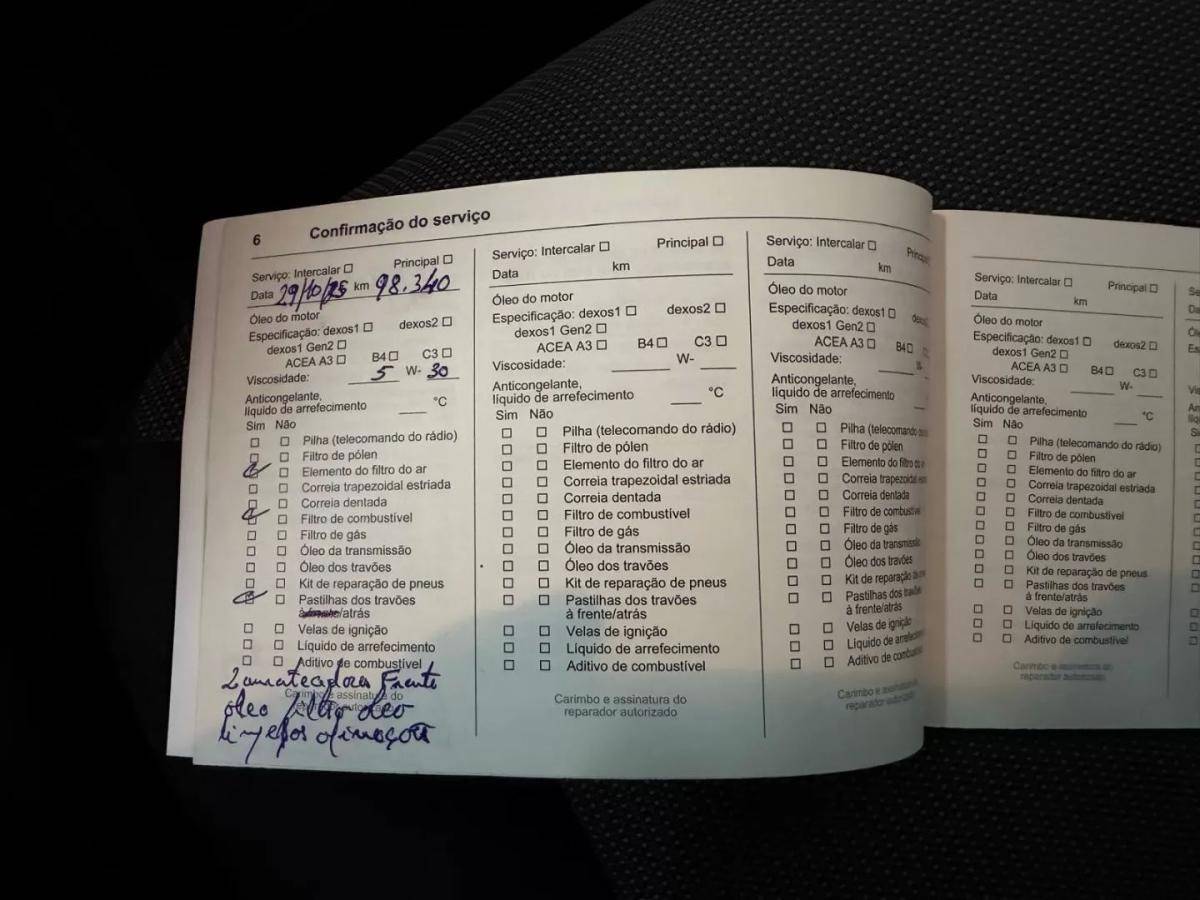 6 Confirmação do serviço
Serviço: Intercalar ☐ Principal ☐
Data 29/10/25 km 98.340
Óleo do motor
Especificação: dexos1 ☐ dexos2 ☐
dexos1 Gen2 ☐
ACEA A3 ☐ B4 ☐ C3 ☐
Viscosidade: 5 W- 30
Anticongelante,
líquido de arrefecimento ____ °C
Sim Não
Pilha (telecomando do rádio)
Filtro de pólen
Elemento do filtro do ar
Correia trapezoidal estriada
Correia dentada
Filtro de combustível
Filtro de gás
Óleo da transmissão
Óleo dos travões
Kit de reparação de pneus
Pastilhas dos travões
à frente/atrás
Velas de ignição
Líquido de arrefecimento
Aditivo de combustível
2 Frente
Carimbo e assinatura do
óleo filtro óleo
Serviço: Intercalar ☐ Principal ☐
Data km
Óleo do motor
Especificação: dexos1 ☐ dexos2 ☐
dexos1 Gen2 ☐
ACEA A3 ☐ B4 ☐ C3 ☐
Viscosidade: ____ W- ____
Anticongelante,
líquido de arrefecimento ____ °C
Sim Não
Pilha (telecomando do rádio)
Filtro de pólen
Elemento do filtro do ar
Correia trapezoidal estriada
Correia dentada
Filtro de combustível
Filtro de gás
Óleo da transmissão
Óleo dos travões
Kit de reparação de pneus
Pastilhas dos travões
à frente/atrás
Velas de ignição
Líquido de arrefecimento
Aditivo de combustível
Carimbo e assinatura do
reparador autorizado
Serviço: Intercalar ☐
Data km
Óleo do motor
Especificação: dexos1 ☐
dexos1 Gen2 ☐
ACEA A3 ☐ B4 ☐
Viscosidade: ____ W-
Anticongelante,
líquido de arrefecimento
Sim Não
Pilha (telecomando do
Filtro de pólen
Elemento do filtro do
Correia trapezoidal
Correia dentada
Filtro de combustível
Filtro de gás
Óleo da transmissão
Óleo dos travões
Kit de reparação de
Pastilhas dos travões
à frente/atrás
Velas de ignição
Líquido de
Aditivo de
Carimbo e assinatura do
reparador autorizado
Serviço: Intercalar ☐ Principal ☐
Data km
Óleo do motor
Especificação: dexos1 ☐ dexos2 ☐
dexos1 Gen2 ☐
ACEA A3 ☐ B4 ☐ C3 ☐
Viscosidade: ____ W- ____
Anticongelante,
líquido de arrefecimento ____ °C
Sim Não
Pilha (telecomando do rádio)
Filtro de pólen
Elemento do filtro do ar
Correia trapezoidal estriada
Correia dentada
Filtro de combustível
Filtro de gás
Óleo da transmissão
Óleo dos travões
Kit de reparação de pneus
Pastilhas dos travões
à frente/atrás
Velas de ignição
Líquido de arrefecimento
Aditivo de combustível
Carimbo e assinatura do
reparador autorizado